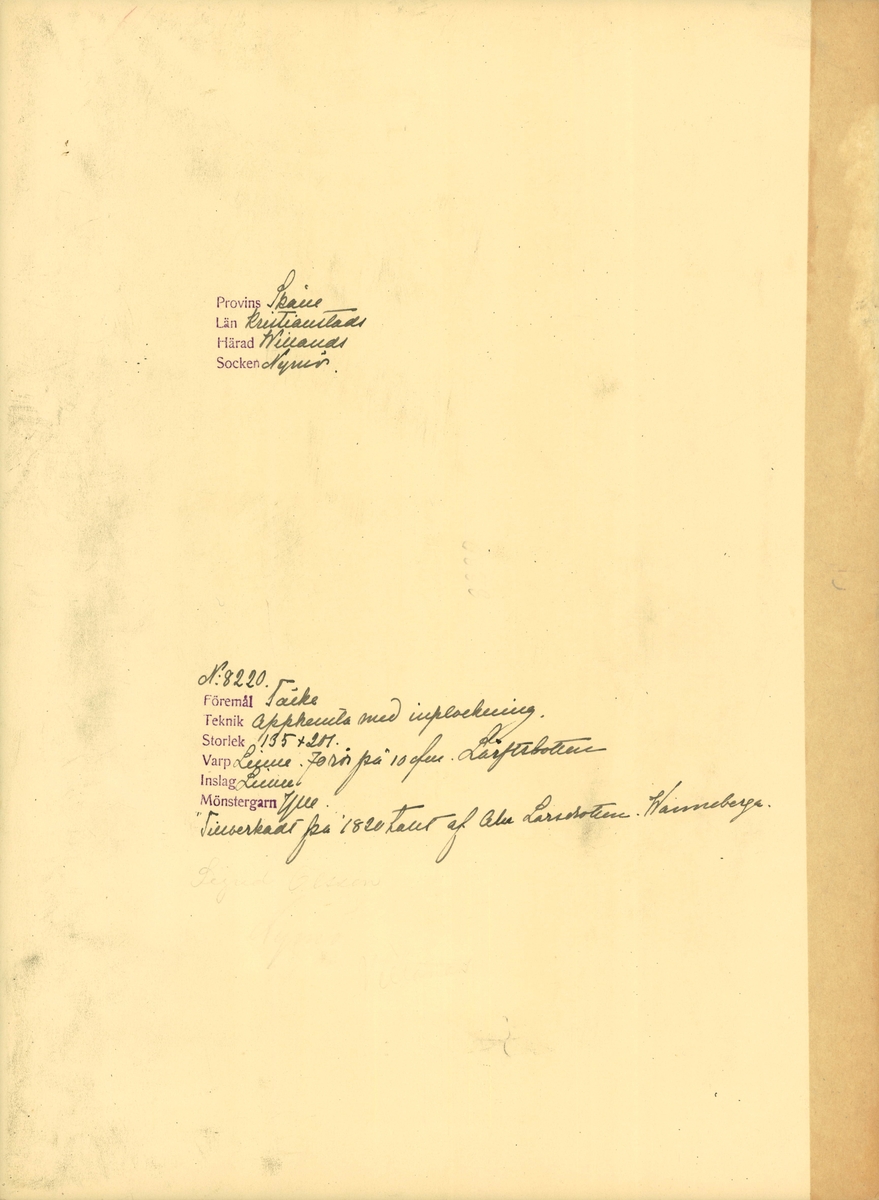 Provins Skåne
Län Kristianstads
Härad Willands
Socken Nymö.
N:8220.
Föremål Täcke
Teknik Upphemta med inplockning.
Storlek 135 x 201.
Varp Linne. 70 rör på 10 cfm. Lärftsbotten
Inslag Linne.
Mönstergarn Ylle.
Tillverkadt på 1820 talet af Larsdotter. Wanneberga.
Olsson